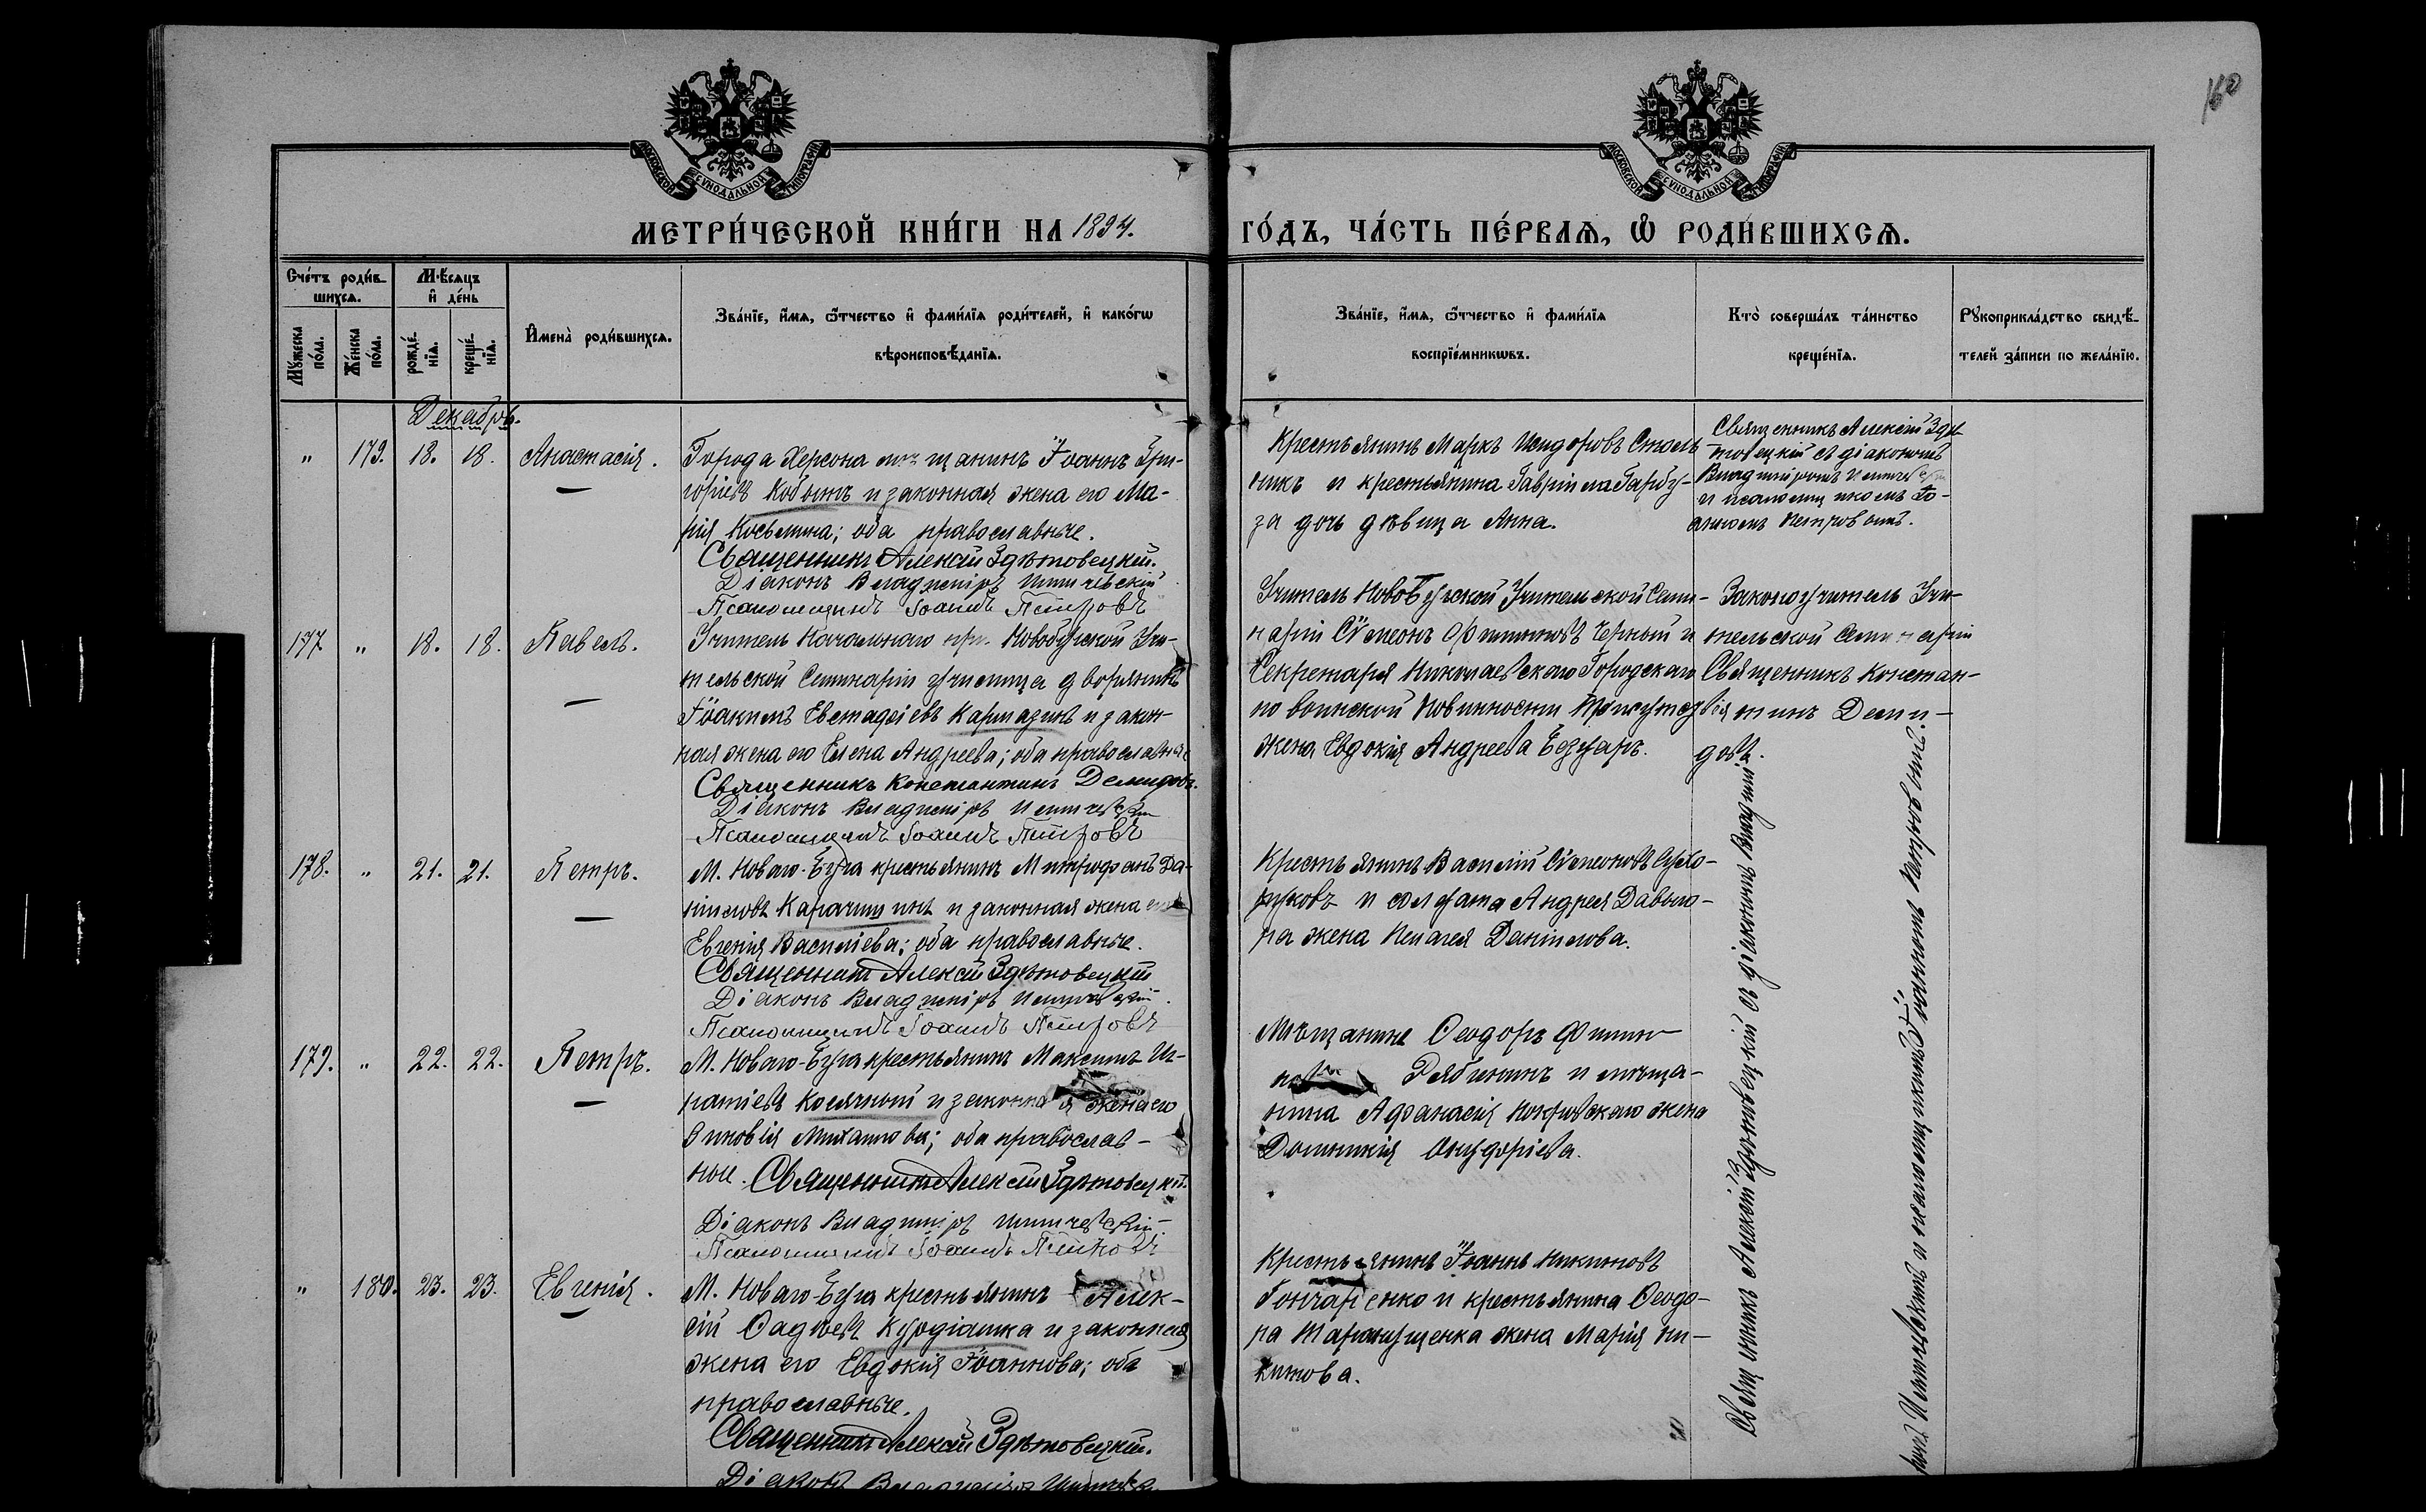 160
МОСКОВСКОЙ СѴНОДАЛЬНОЙ ТИПОГРАФІИ
МОСКОВСКОЙ СѴНОДАЛЬНОЙ ТИПОГРАФІИ
МЕТРИ́ЧЕСКОЙ КНИ́ГИ НА 1894.
ГО́ДЪ, ЧА́СТЬ ПЕ́РВАѦ, Ѿ РОДИ́ВШИХСѦ.
Сче́тъ роди́в-
шихсѧ.
Мꙋ́жеска по́ла.
Же́нска по́ла.
Мѣ́сѧцъ
и҆ де́нь
рожде́-
нїѧ.
креще́-
нїѧ.
И҆мена̀ роди́вшихсѧ.
Зва́нїе, и҆́мѧ, ѻ҆́тчество и҆ фами́лїѧ роди́телей, и҆ како́гѡ
вѣроисповѣ́данїѧ.
Зва́нїе, и҆́мѧ, ѻ҆́тчество и҆ фами́лїѧ
воспрїе́мникѡвъ.
Кто̀ соверша́лъ та́инство
креще́нїѧ.
Рꙋкоприкла́дство свидѣ́-
телей за́писи по жела́нїю.
Декабрь.
" 179. 18. 18. Анастасія.
Города Херсона мѣщанинъ Іоаннъ Гри-
горіевъ Кобынъ и законная жена его Ма-
рія Косьмина; оба православные.
Священникъ Алексій Здѣтовецкій.
Діаконъ Владиміръ
Псаломщикъ Іоаннъ Петровъ
Крестьянинъ Маркъ Исидоровъ Сталь
никъ и крестьянина Гавріила Гарбу-
за дочь дѣвица Анна.
Священникъ Алексій Здѣ-
товецкій съ діакономъ
Владиміромъ
и псаломщикомъ Іо-
анномъ Петровымъ.
177 " 18. 18. Павелъ.
Учитель Начальнаго при Новобугской Учи-
тельской Семинаріи училища дворянинъ
Іоакимъ Евстафіевъ Кармазинъ и закон-
ная жена его Елена Андреева; оба православные
Священникъ Константинъ Демидовъ.
Діаконъ Владиміръ
Псаломщикъ Іоаннъ Петровъ
Учитель Новобугской Учительской Семи-
наріи Сѵмеонъ Филипповъ Черный и
Секретаря Николаевскаго Городскаго
по воинской повинности Присутствія
жена Евдокія Андреева Безуаръ.
Законоучитель Учи-
тельской Семинаріи
Священникъ Констан-
тинъ Деми-
довъ.
178. " 21. 21. Петръ.
М. Новаго-Буга крестьянинъ Митрофанъ Да-
ніиловъ Карачицинъ и законная жена его
Евгенія Василіева; оба православные.
Священникъ Алексій Здѣтовецкій
Діаконъ Владиміръ
Псаломщикъ Іоаннъ Петровъ
Крестьянинъ Василій Сѵмеоновъ Сухо-
руковъ и солдата Андрея Давыдо-
ра жена Пелагея Даніилова.
179. " 22. 22. Петръ.
М. Новаго-Буга крестьянинъ Максимъ Иг-
натіевъ Косячный и законная жена его
Зиновія Михаилова; оба православ-
ные. Священникъ Алексій Здѣтовецкій.
Діаконъ Владиміръ
Псаломщикъ Іоаннъ Петровъ
Мѣщанинъ Ѳеодоръ Филип-
повъ Рябининъ и мѣща-
нина Аѳанасія Покровскаго жена
Домникія Онуфріева.
" 180. 23. 23. Евгенія.
М. Новаго-Буга крестьянинъ Алек-
сій Ѳадѣевъ Курдіашка и законная
жена его Евдокія Іоаннова; оба
православные.
Священникъ Алексій Здѣтовецкій.
Діаконъ Владиміръ
Крестьянинъ Іоаннъ Никитовъ
Гончаренко и крестьянина Ѳеодо-
ра Таранущенка жена Марія Ни-
китова.
Священникъ Алексій Здѣтовецкій съ діакономъ Владимі-
и псаломщикомъ Іоанномъ Петровымъ.